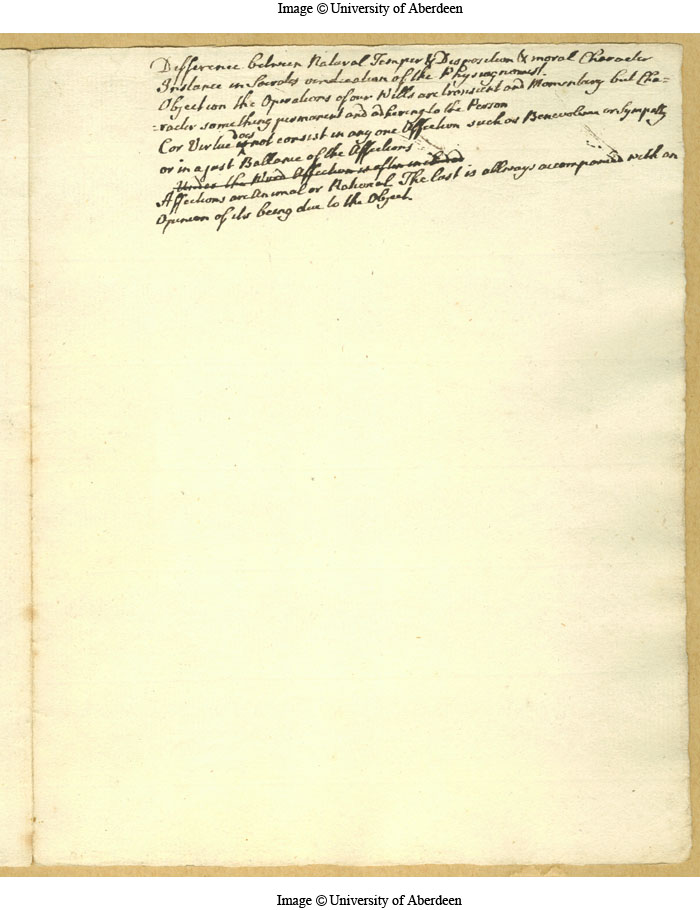 Image © University of Aberdeen
Difference between Natural Temper & Disposition & moral Character
Instance in Socrates vindication of the Physiognomist.
Objection the Operations of our Wills are transient and Momentary but Cha=
=racter something permanent and adhering to the Person
Cor Virtue does not consist in any one Affection such as Benevolence or Sympathy
or in a just Ballance of the Affections
Under the Word Affection is often included
Affections are Animal or Rational. The last is allways accompanied with an
Opinion of its being due to the Object.
Image © University of Aberdeen